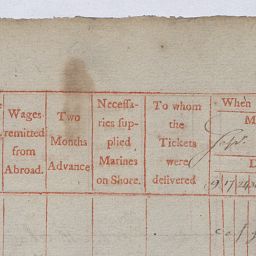 Wages
remitted
from
Abroad.
Two
Months
Advance
Necessa-
ries sup-
plied
Marines
on Shore.
To whom
the
Tickets
were
delivered
When
M
Sepr.
D
9 17 24